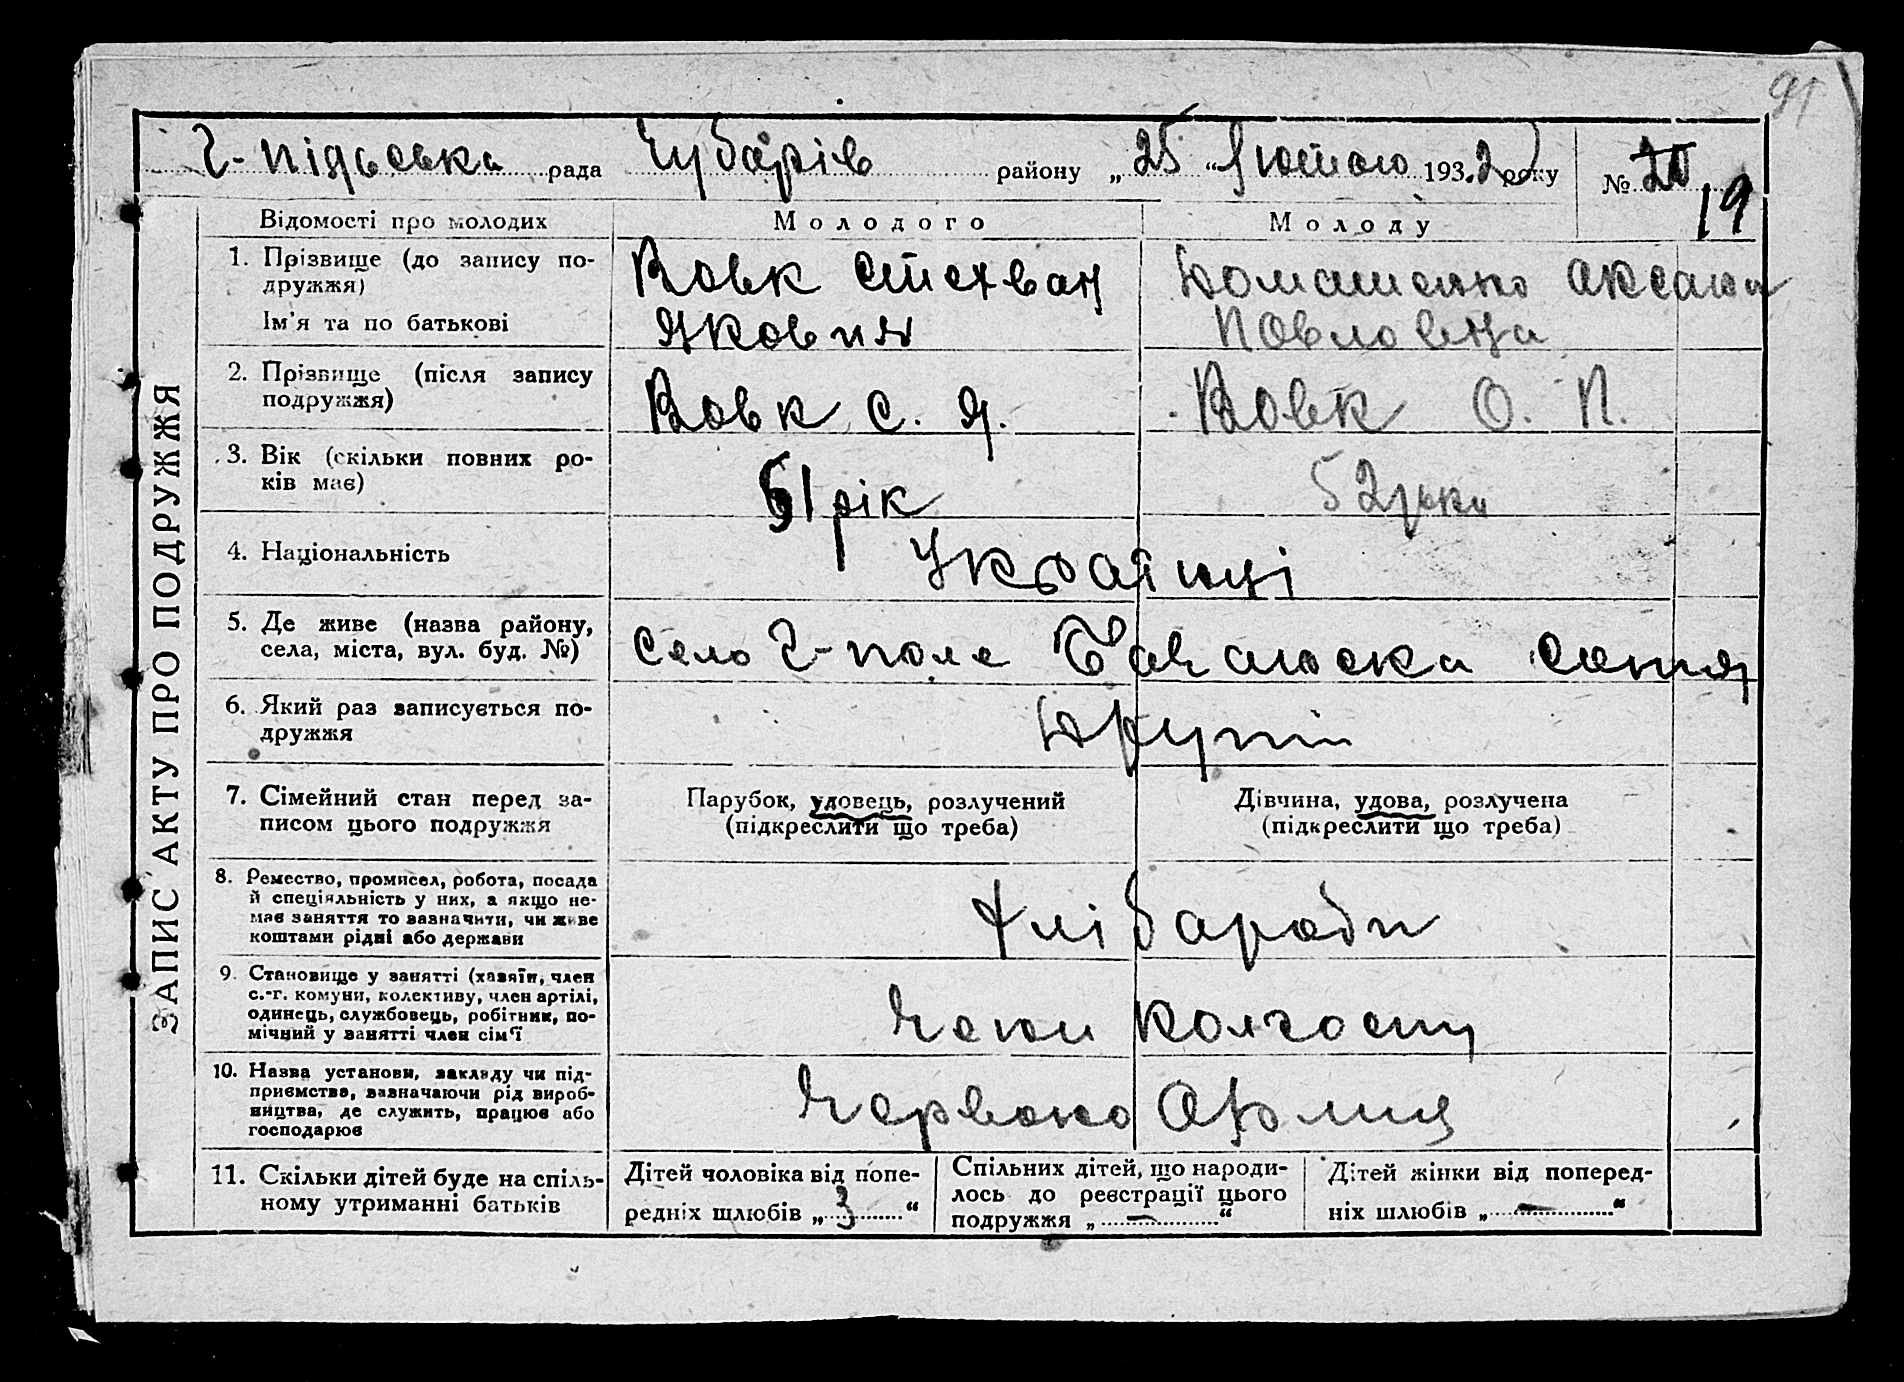 91
Г-пільська рада Чубарів району „25“ Лютого 193.2 року № 20 19
ЗАПИС АКТУ ПРО ПОДРУЖЖЯ
Відомості про молодих Молодого Молоду
1. Прізвище (до запису по-
дружжя)
Ім'я та по батькові
Вовк Стехван
Якович
Домашенко Аксана
Повловна
2. Прізвище (після запису
подружжя)
Вовк С. Я.
Вовк О. П.
3. Вік (скільки повних ро-
ків має)
51 рік
52 роки
4. Національність
Українці
5. Де живе (назва району,
села, міста, вул. буд. №)
село Г-поле сотня
6. Який раз записується по-
дружжя
Другий
7. Сімейний стан перед за-
писом цього подружжя
Парубок, удовець, розлучений
(підкреслити що треба)
Дівчина, удова, розлучена
(підкреслити що треба)
8. Ремество, промисел, робота, посада
й спеціяльність у них, а якщо не-
має заняття то зазначити, чи живе
коштами рідні або держави
Хлібароби
9. Становище у занятті (хазяїн, член
с.-г. комуни, колективу, член артілі,
одинець, службовець, робітник, по-
мічний у занятті член сім'ї
Члени Колгоспу
10. Назва установи, закладу чи під-
приємства, зазначаючи рід вироб-
ництва, де служить, працює або
господарює
11. Скільки дітей буде на спіль-
ному утриманні батьків
Дітей чоловіка від попе-
редніх шлюбів „ 3 “
Спільних дітей, що народи-
лось до реєстрації цього
подружжя „ — “
Дітей жінки від поперед-
ніх шлюбів „ — “